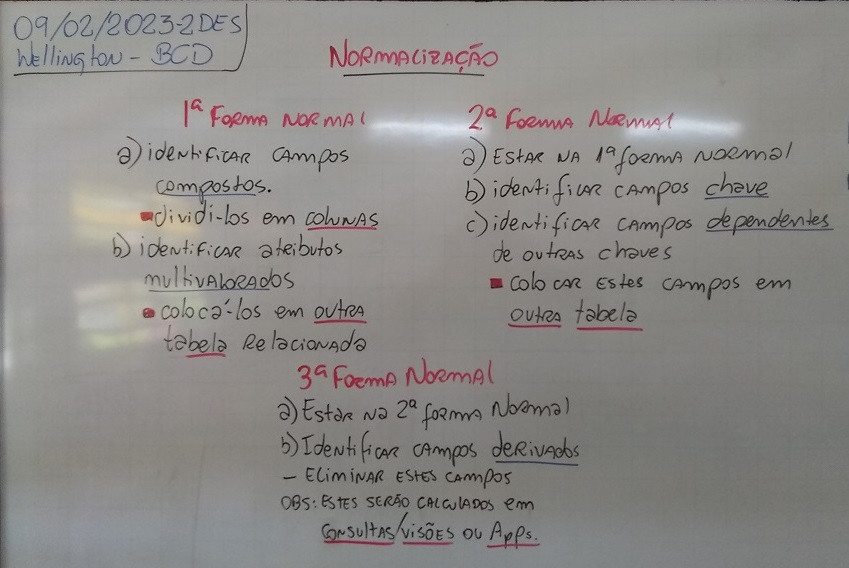 09/02/2023-2DES
Wellington - BCD
NORMALIZAÇÃO
1ª FORMA NORMAL
a) identificar campos
compostos.
dividi-los em colunas
b) identificar atributos
multivalorados
colocá-los em outra
tabela relacionada
2ª FORMA NORMAL
a) ESTAR NA 1ª forma normal
b) identificar campos chave
c) identificar campos dependentes
de outras chaves
colocar estes campos em
outra tabela
3ª Forma Normal
a) Estar na 2ª forma Normal
b) Identificar campos derivados
- Eliminar estes campos
OBS: ESTES SERÃO CALCULADOS em
consultas/visões ou Apps.